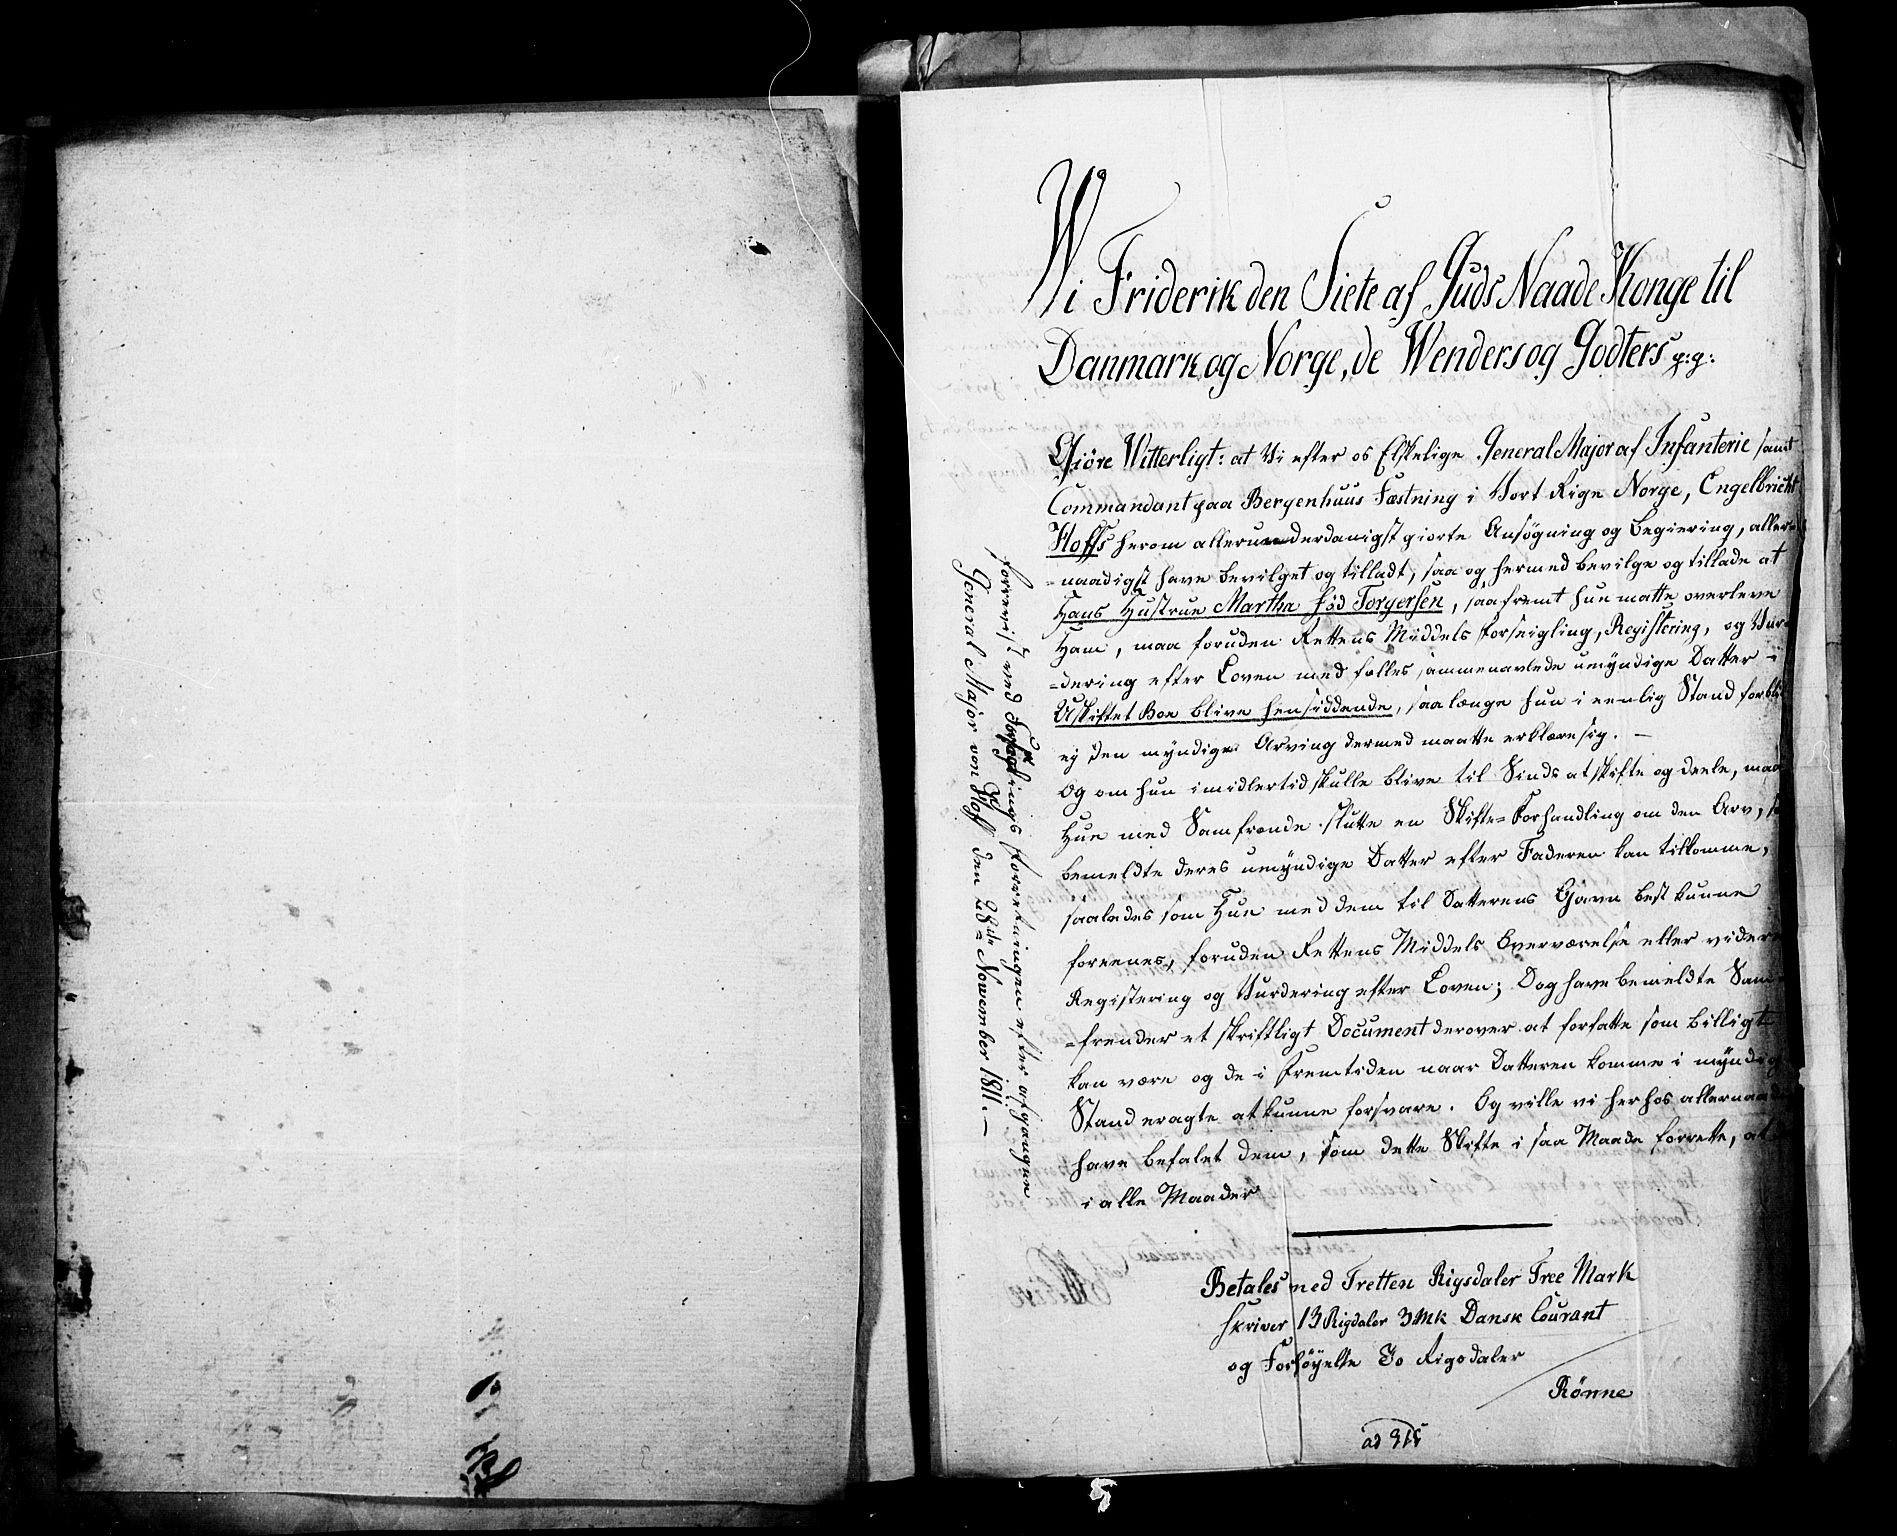 Wi Friderik den Siete af Guds Naade Konge til
Danmark og Norge, de Wenders og Godters p: p:
Giöre Witterligt: at Vi efter os Elskelige General Major af Infanterie samt
Commandant paa Bergenhuus Fæstning i Vort Rige Norge, Engelbricht
Hoffs herom allerunderdanigst giorte Ansøgning og Begiering, aller-
-naadigst have bevilget og tilladt, saa og hermed bevilge og tillade at
Hans Hustrue Martha fød Torgersen, saafremt hun matte overleve
Ham, maa foruden Rettens Middels Forseigling, Registering, og Vur-
-dering efter Loven med fælles sammenavlede umyndige Datter i
Uskiftet Boe blive hensiddende, saalænge hun i eenlig Stand forbli
ej den myndige Arving dermed maatte erklære sig. —
Og om hun imidlertid skulle blive til Sinds at skifte og deele, maa
Hun med Samfrende slutte en Skifte-Forhandling om den Arv, s
bemeldte deres umyndige Datter efter Faderen kan tilkomme,
saaledes som Hun med dem til Datterens Gavn best kunne
foreenes, foruden Rettens Middels Overværelse eller videre
Registering og Vurdering efter Loven; Dog have bemeldte Sam-
-frender et skriftligt Document derover at forfatte som billigt
kan være og de i Fremtiden naar Datteren komme i myndig
Stand eragte at kunne forsvare. Og ville vi herhos allernaadi
have befalet dem, som dette Skifte i saa Maade forrette, at
i alle Maader
Betales med Tretten Rigsdaler Tree Mark
skriver 13 Rigdaler 3 Mk Dansk Courant
og Forhøyelse Rigsdaler
Rönne
ad 915
foreviist ved Forseglings Forretningen efter afgangne
General Major von Hoff den 28de November 1811. —
5